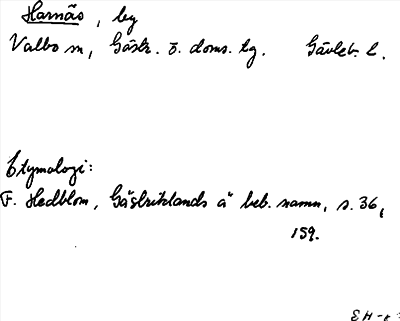 Harnäs, by
Valbo sn, Gästr. ö. doms. tg. Gävleb. l.
Etymologi:
F. Hedblom, Gästriklands ä beb. namn, s. 36,
159.